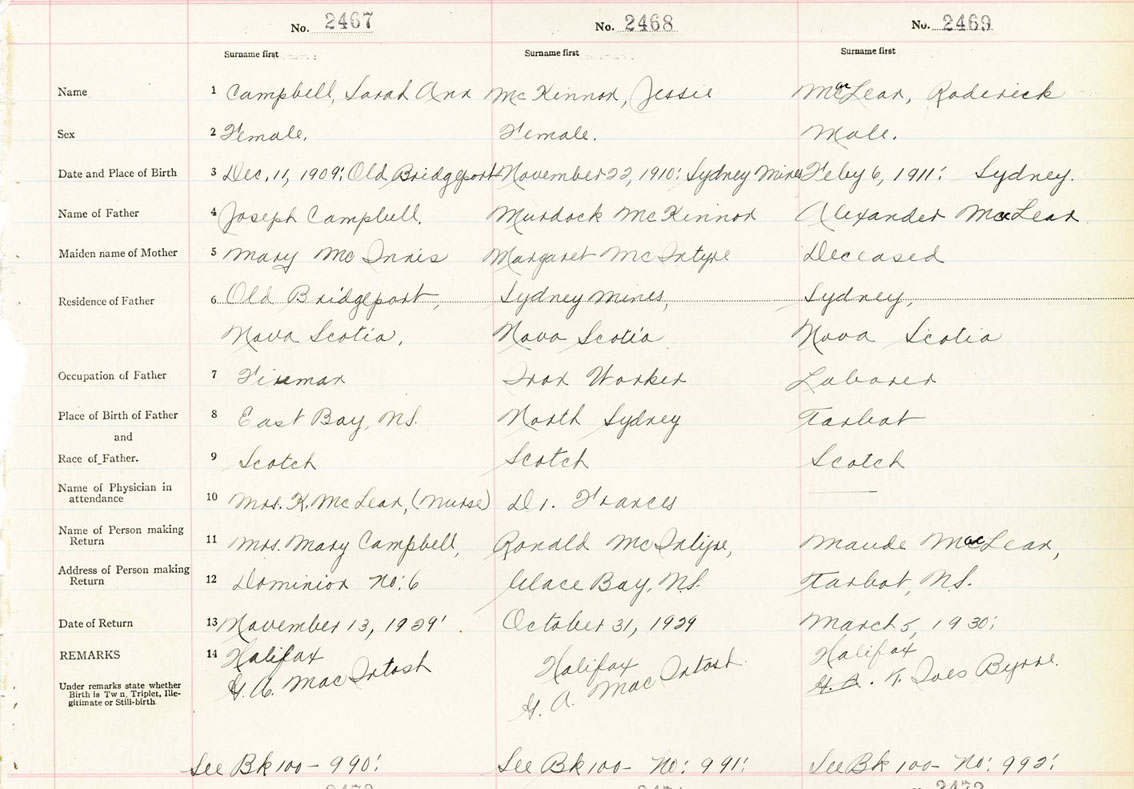 No. 2467 No. 2468 No. 2469
Surname first Surname first Surname first
Name 1 Campbell, Sarah Ann McKinnon, Jessie MacLean, Roderick
Sex 2 Female. Female. Male.
Date and Place of Birth 3 Dec. 11, 1909: Old Bridgeport November 22, 1910: Sydney Mines Feby 6, 1911: Sydney.
Name of Father 4 Joseph Campbell. Murdock McKinnon Alexander MacLean
Maiden name of Mother 5 Mary McInnis Margaret McIntyre Deceased
Residence of Father 6 Old Bridgeport, Sydney Mines, Sydney,
Nova Scotia, Nova Scotia Nova Scotia
Occupation of Father 7 Fireman Iron Worker Laborer
Place of Birth of Father 8 East Bay, N.S. North Sydney Tarbot
and
Race of Father. 9 Scotch Scotch Scotch
Name of Physician in
attendance 10 Mrs. K. McLean, (Nurse) Dr. Frances
Name of Person making
Return 11 Mrs. Mary Campbell, Ronald McIntyre, Maude MacLean,
Address of Person making
Return 12 Dominion No: 6 Glace Bay, N.S. Tarbot, N.S.
Date of Return 13 November 13, 1929' October 31, 1929 March 5, 1930:
REMARKS 14 Halifax Halifax Halifax
G. A. MacIntosh G. A. MacIntosh Byrne.
Under remarks state whether
Birth is Twin, Triplet, Ille-
gitimate or Still-birth.
See Bk 100 - 990: See Bk 100 - No: 991: See Bk 100 - No: 992: